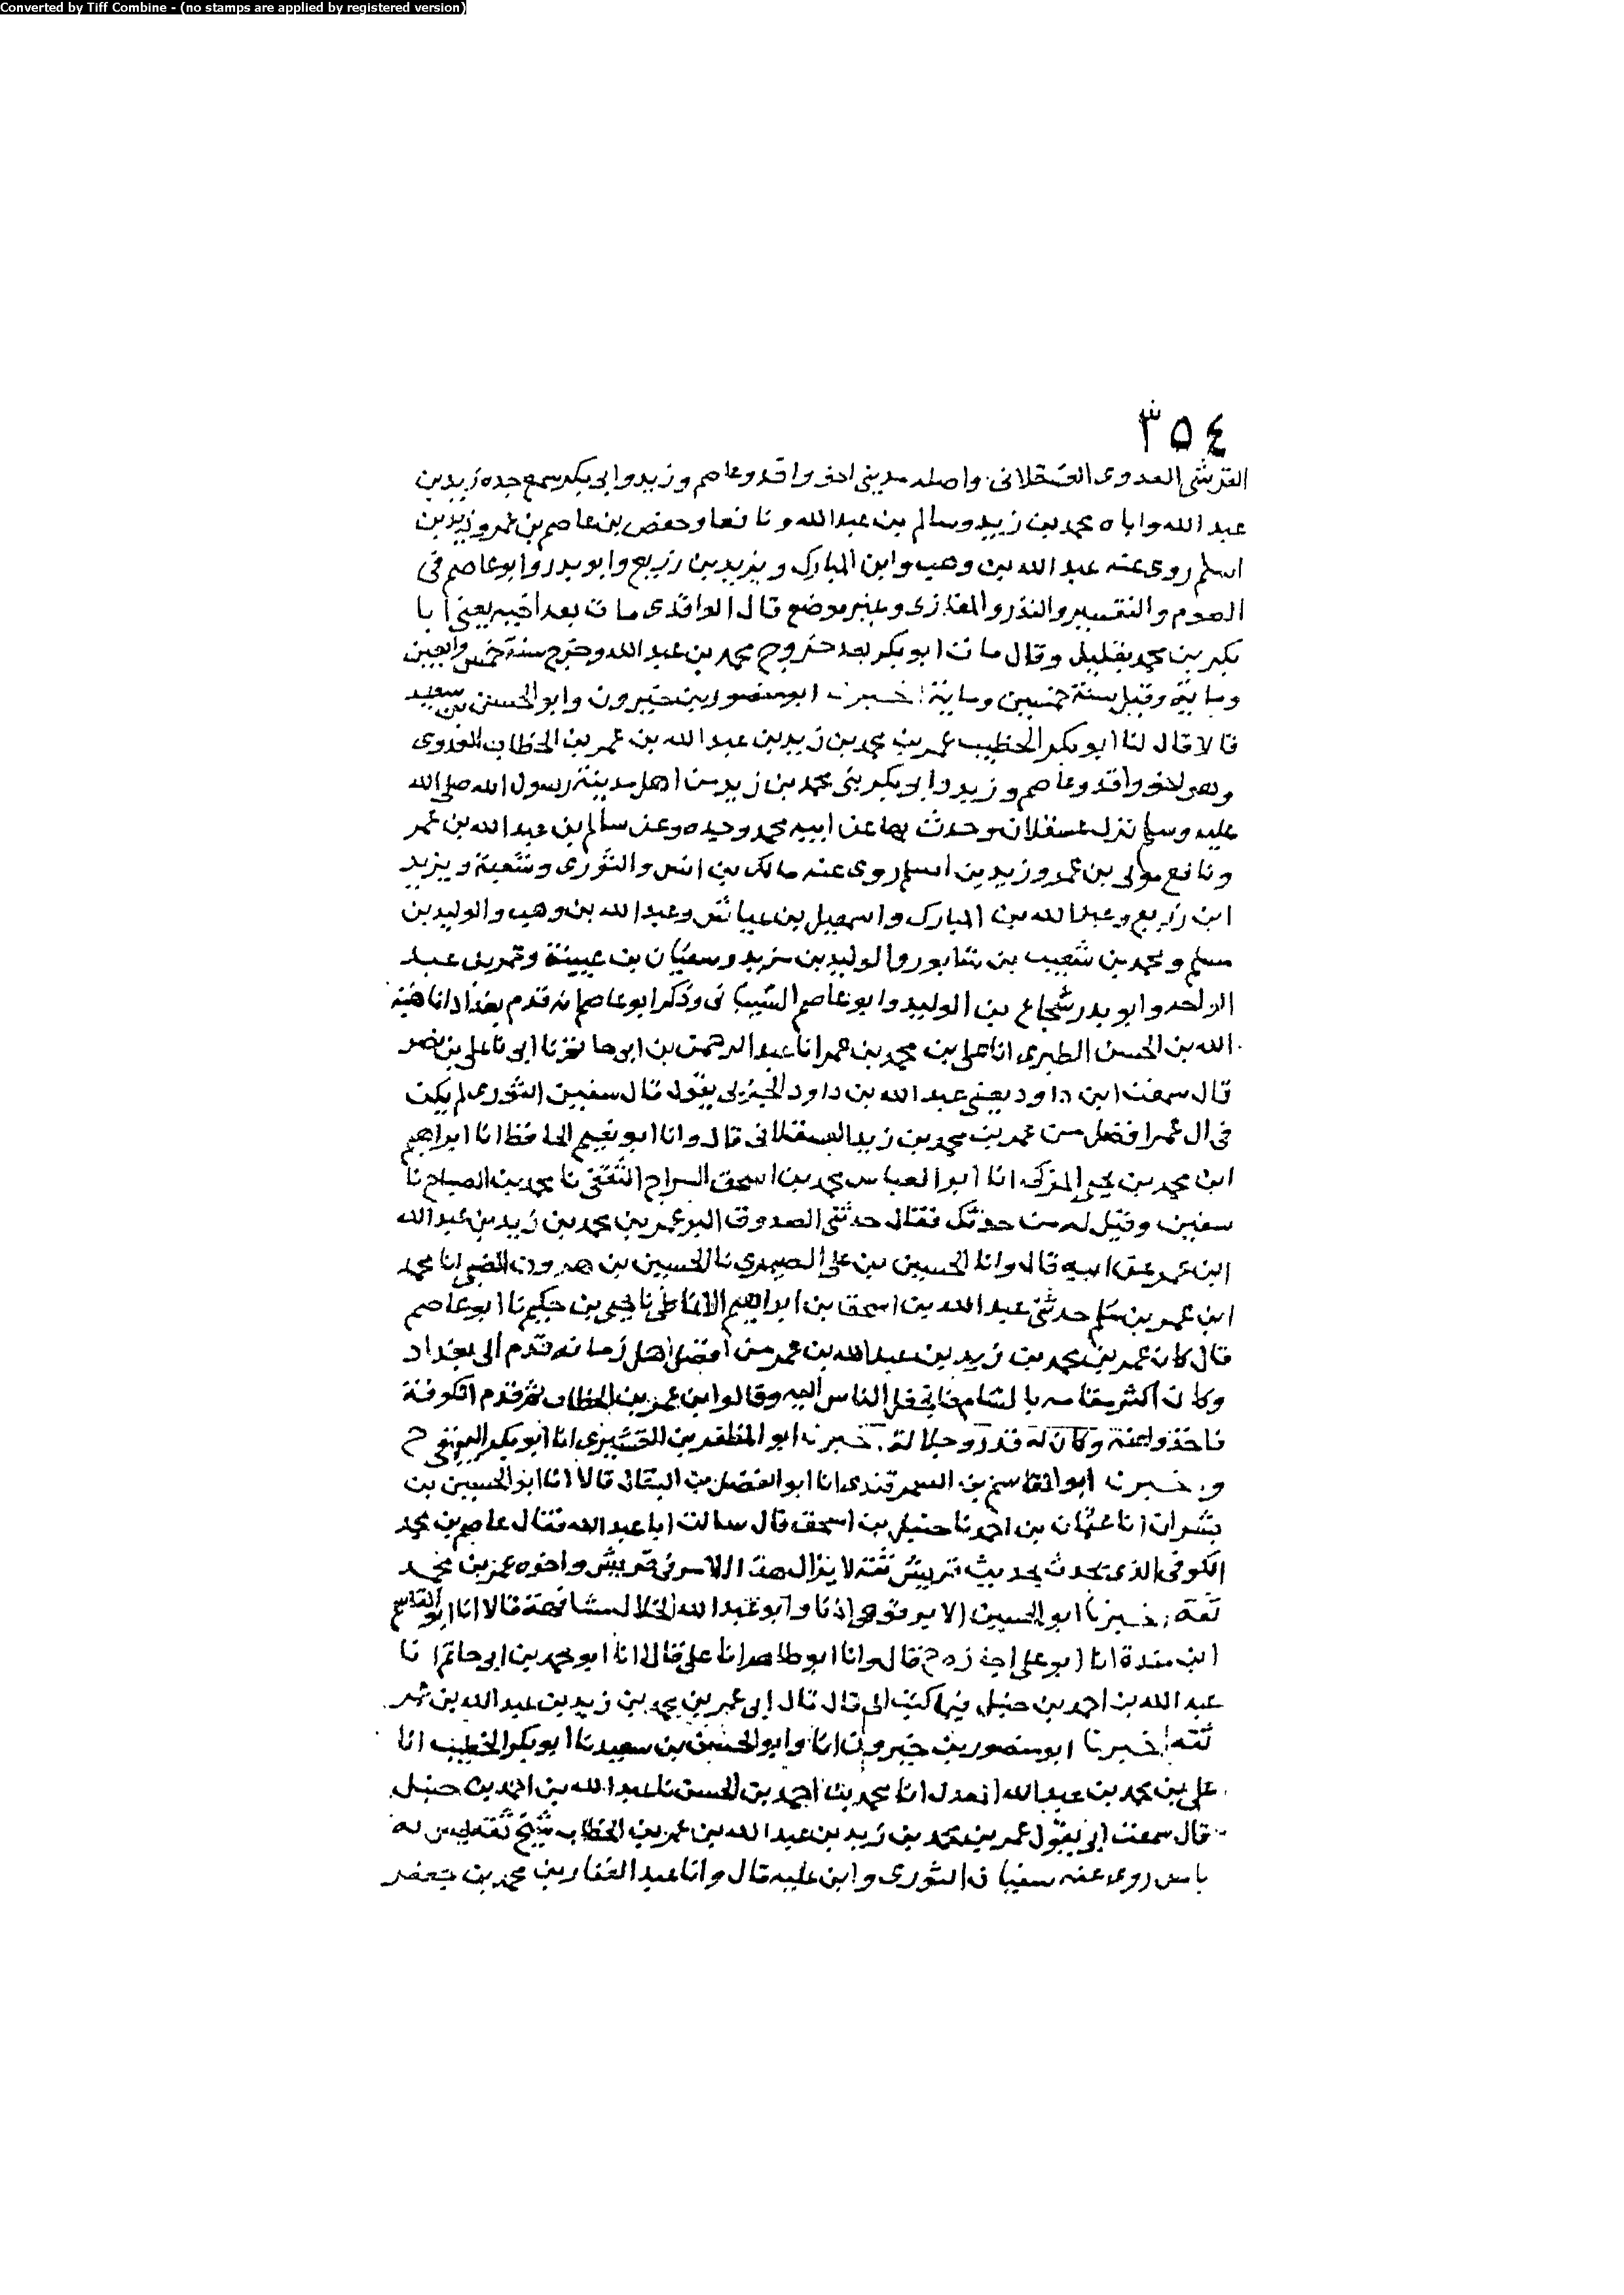 Converted by Tiff Combine - (no stamps are applied by registered version)
٣٥٤
القرشي العدوي العسقلاني واصله مديني اخو واقد وعاصم وزيد وابي بكر سمع جده زيد بن
عبد الله واباه محمد بن زيد وسالم بن عبد الله ونافعا وحفص بن عاصم بن عمر وزيد بن
اسلم روى عنه عبد الله بن وهب وابن المبارك ويزيد بن زريع وابو بدر وابو عاصم في
الصوم والتفسير والنذر والمغازي وغير موضع قال الواقدي مات بعد اخيه يعني ابا
بكر بن محمد بقليل وقال مات ابو بكر بعد خروج محمد بن عبد الله وخرج سنة خمس واربعين
وماية وقيل سنة خمسين وماية اخبرنا ابو منصور بن خيرون وابو الحسن بن سعيد
قالا قال لنا ابو بكر الخطيب عمر بن محمد بن زيد بن عبد الله بن عمر بن الخطاب العدوي
وهو اخو واقد وعاصم وزيد وابو بكر بني محمد بن زيد من اهل مدينة رسول الله صلى الله
عليه وسلم نزل عسقلان وحدث بها عن ابيه محمد وجده وعن سالم بن عبد الله بن عمر
ونافع مولى بن عمر وزيد بن اسلم روى عنه مالك بن انس والثوري وشعبة ويزيد
ابن زريع وعبد الله بن المبارك واسمعيل بن عياش وعبد الله بن وهب والوليد بن
مسلم ومحمد بن شعيب بن شابور والوليد بن مزيد وسفيان بن عيينة وعمر بن عبد
الواحد وابو بدر شجاع بن الوليد وابو عاصم الشيباني وذكر ابو عاصم انه قدم بغداد انا هبة
الله بن الحسن الطبري انا علي بن محمد بن عمر انا عبد الرحمن بن ابو حاتم نا ابي نا علي بن نصر
قال سمعت ابن داود يعني عبد الله بن داود الخريبي يقول قال سفين الثوري لم يكن
في ال عمر افضل من عمر بن محمد بن زيد العسقلاني قال وانا ابو نعيم الحافظ انا ابراهيم
ابن محمد بن يحيى المزكي انا ابو العباس محمد بن اسحق السراج الثقفي نا محمد بن الصباح نا
سفين وقيل له من حدثك فقال حدثني الصدوق البر عمر بن محمد بن زيد بن عبد الله
ابن عمر عن ابيه قال وانا الحسين بن علي الصيمري نا الحسين بن هرون الضبي انا محمد
ابن عمر بن سلم حدثني عبد الله بن اسحق بن ابراهيم الانماطي نا يحيى بن حكيم نا ابو عاصم
قال كان عمر بن محمد بن زيد بن عبد الله بن عمر من افضل اهل زمانه قدم الى بغداد
وكان اكثر مقامه بالشام فانجفل الناس اليه وقالوا ابن عمر بن الخطاب ثم قدم الكوفة
فاخذوا عنه وكان له قدر وجلالة اخبرنا ابو المظفر بن القشيري انا ابو بكر البيهقي ح
واخبرنا ابو القاسم بن السمرقندي انا ابو الفضل بن البقال قالا انا ابو الحسين بن
بشران انا عثمان بن احمد نا حنبل بن اسحق قال سالت ابا عبد الله فقال عاصم بن محمد
الكوفي الذي يحدث بحديث قريش ثقة لا يزال هذا الامر في قريش واخوه عمر بن محمد
ثقة اخبرنا ابو الحسين الابرقوهي اذنا وابو عبد الله الخلال مشافهة قالا انا ابو القاسم
ابن مندة انا ابو علي اجازة ح قال وانا ابو طاهر انا علي قالا انا ابو محمد بن ابو حاتم انا
عبد الله بن احمد بن حنبل فيما كتب الي قال قال ابي عمر بن محمد بن زيد بن عبد الله بن عمر
ثقة اخبرنا ابو منصور بن خيرون انا وابو الحسن بن سعيد نا ابو بكر الخطيب انا
علي بن محمد بن عبد الله المعدل انا محمد بن احمد بن الحسن نا عبد الله بن احمد بن حنبل
قال سمعت ابي يقول عمر بن محمد بن زيد بن عبد الله بن عمر بن الخطاب شيخ ثقة ليس به
باس روى عنه سفيان الثوري وابن علية قال وانا عبد الغفار بن محمد بن جعفر